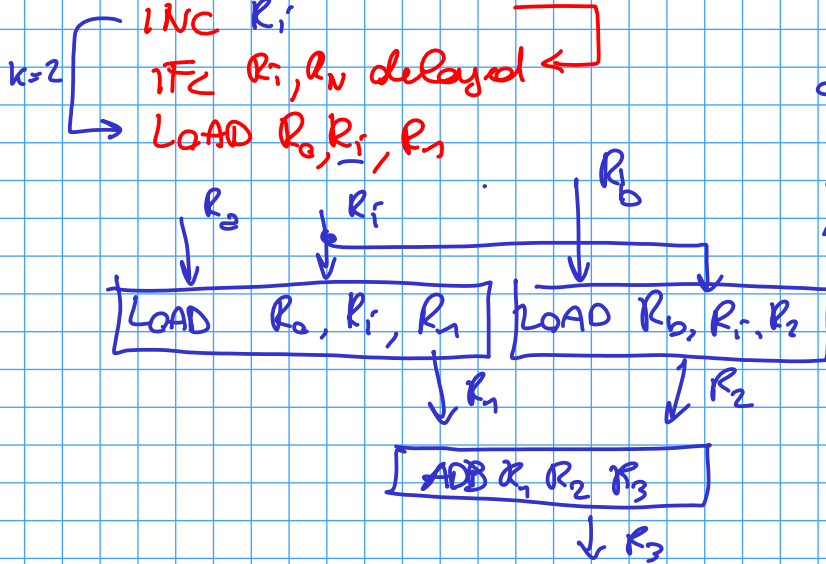 INC Ri
k=2
IF< Ri, RN delayed
LOAD Ra, Ri, R1
Ra Ri Rb
LOAD Ra, Ri, R1
LOAD Rb, Ri, R2
R1 R2
ADD R1 R2 R3
R3